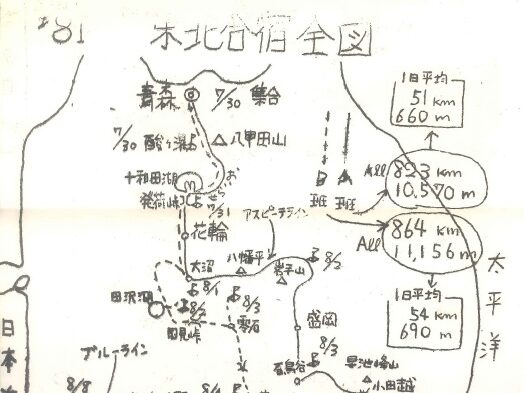 '81 東北合宿全図
青森
7/30 集合
7/30 酸ヶ湯
八甲田山
十和田湖
発荷峠
7/31
花輪
アスピーテライン
八幡平
岩手山
8/2
大沼
8/1
田沢湖
8/2
国見峠
8/3
雫石
盛岡
8/3
石鳥谷
早池峰山
小田越
ブルーライン
8/8
日本
B班
A班
1日平均
51 km
660 m
All
823 km
10,570 m
All
864 km
11,156 m
1日平均
54 km
690 m
太平洋